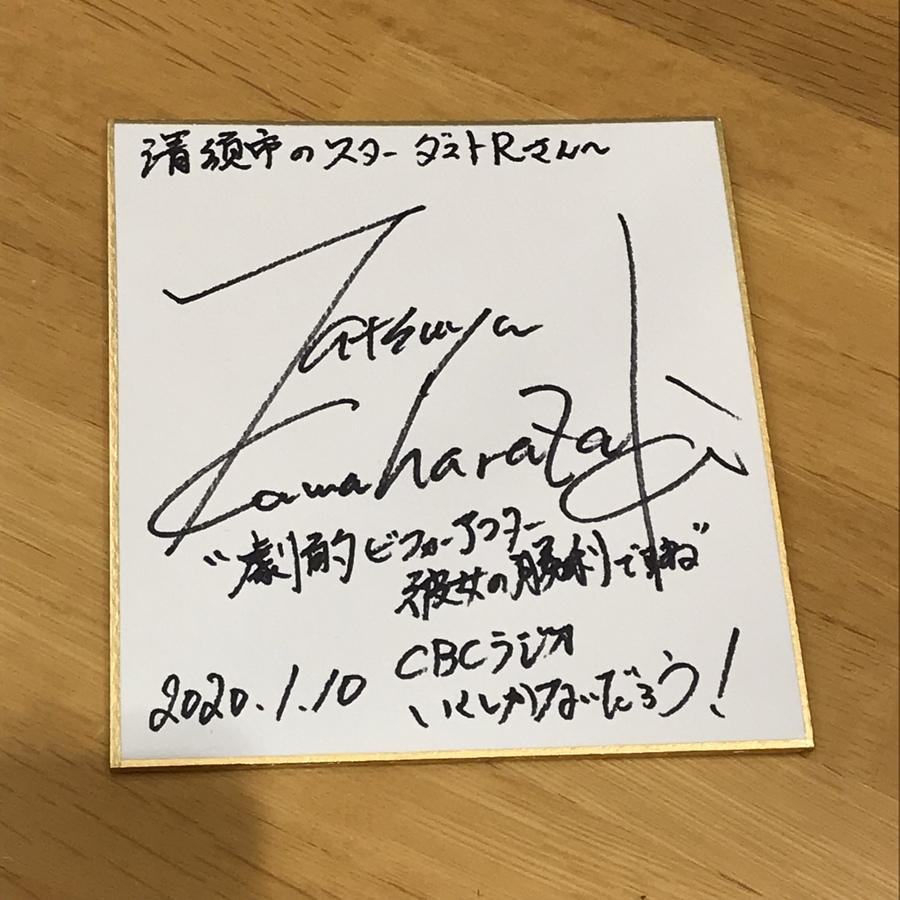 清須市のスターダストRさんへ
Tatsuya
Kawaharazaki
"劇的ビフォーアフター
彼女の勝利ですね"
2020.1.10
CBCラジオ
いくしかないだろう!